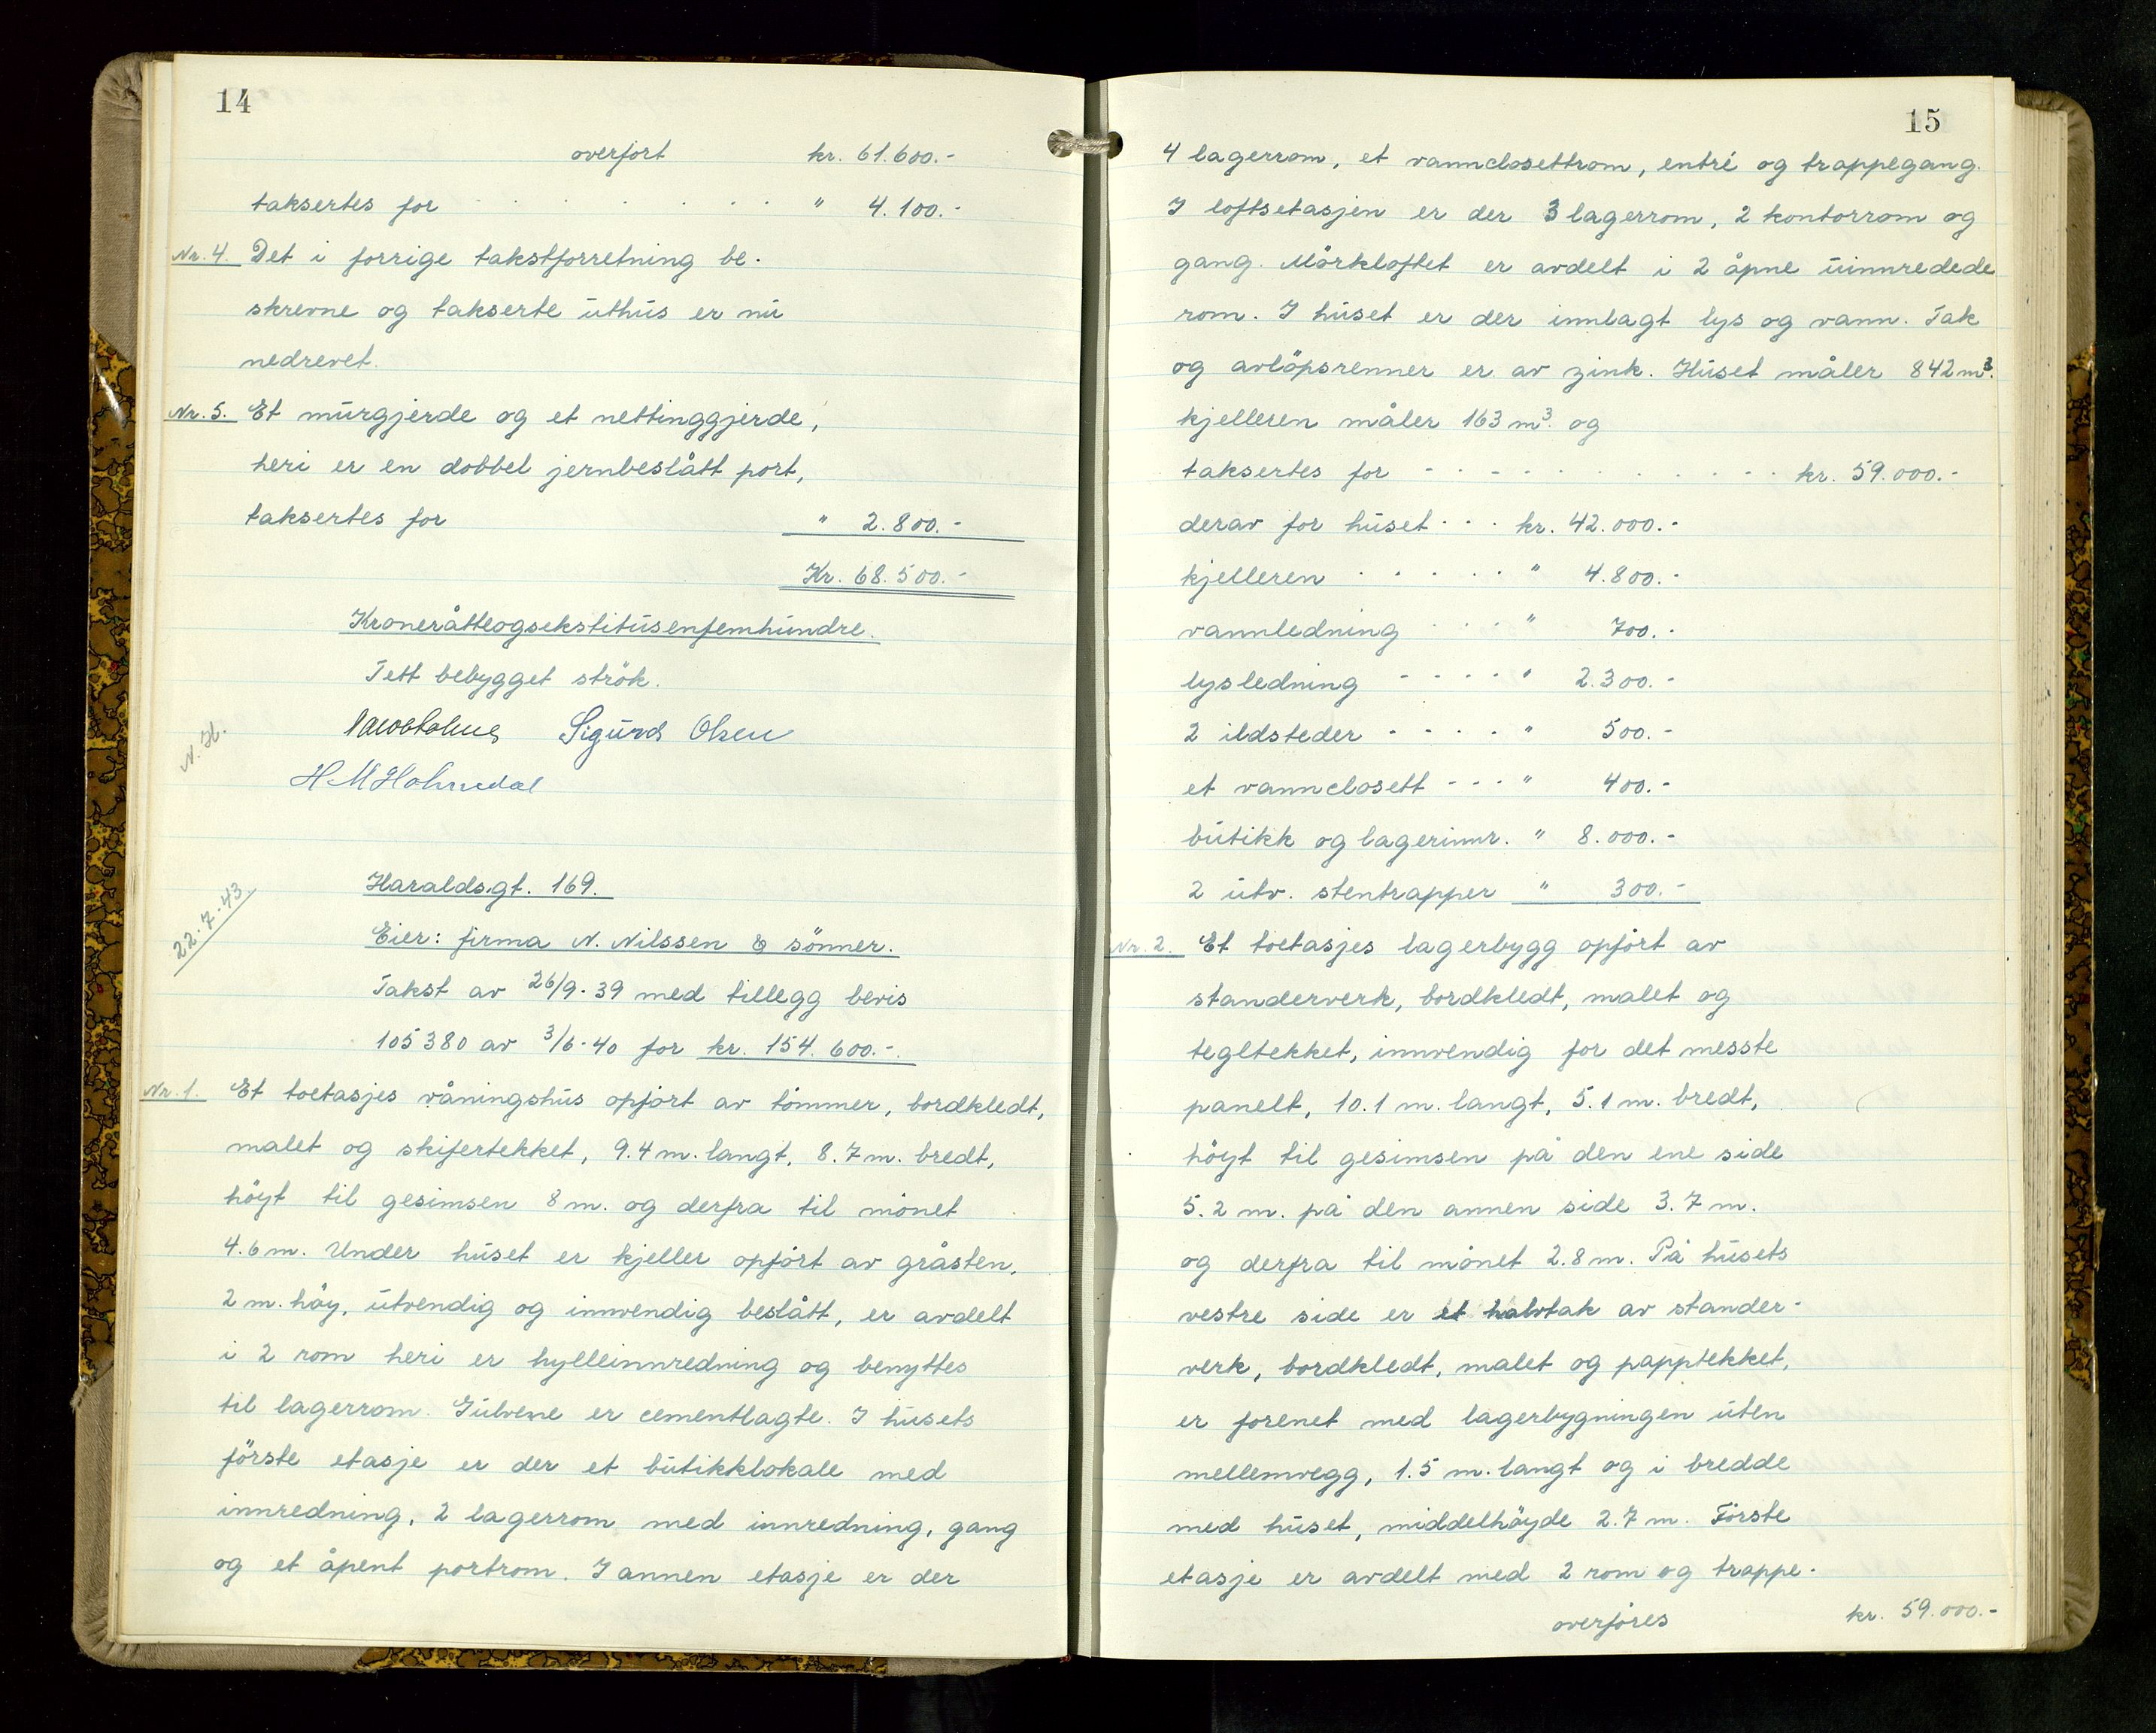 14
overført kr. 61.600.-
taksertes for . . . . . . . . . " 4.100.-
Nr. 4. Det i forrige takstforretning be-
skrevne og takserte uthus er nu
nedrevet.
Nr. 5. Et murgjerde og et nettinggjerde,
heri er en dobbel jernbeslått port,
taksertes for " 2.800.-
Kr. 68.500.-
Kroneråtteogsekstitusenfemhundre.
Tett bebygget strök.
Sigurd Olsen
N. H.
Haraldsgt. 169.
22.7.43
Eier: firma N. Nilssen & sönner.
Takst av 26/9-39 med tillegg bevis
105380 av 3/6-40 for kr. 154.600.-.
Nr. 1. Et toetasjes våningshus opført av tömmer, bordkledt,
malet og skifertekket, 9.4 m. langt, 8.7 m. bredt,
höyt til gesimsen 8 m. og derfra til mönet
4.6 m. Under huset er kjeller opfört av gråsten,
2 m. höy, utvendig og innvendig beslått, er avdelt
i 2 rom heri er hylleinnredning og benyttes
til lagerrom. Gulvene er cementlagte. I husets
förste etasje er der et butikklokale med
innredning, 2 lagerrom med innredning, gang
og et åpent portrom. I annen etasje er der
15
4 lagerrom, et vannclosettrom, entré og trappegang.
I loftsetasjen er der 3 lagerrom, 2 kontorrom og
gang. Mörkloftet er avdelt i 2 åpne uinnredede
rom. I huset er der innlagt lys og vann. Tak
og avlöpsrenner er av zink. Huset måler 842 m³.
kjelleren måler 163 m³. og
taksertes for - - - - . . . . . . . kr. 59.000.-
derav for huset . . . kr. 42.000.-
kjelleren . . . . . " 4.800.-
vannledning . . . " 700.-
lysledning - - - - " 2.300.-
2 ildsteder - - - - " 500.-
et vannclosett - - - " 400.-
butikk og lagerinnr. " 8.000.-
2 utv. stentrapper " 300.-
Nr. 2. Et toetasjes lagerbygg opfört av
standerverk, bordkledt, malet og
tegltekket, innvendig for det messte
panelt, 10.1 m. langt, 5.1 m. bredt,
höyt til gesimsen på den ene side
5.2 m. på den annen side 3.7 m.
og derfra til mönet 2.8 m. På husets
vestre side er et halvtak av stander-
verk, bordkledt, malet og papptekket,
er forenet med lagerbygningen uten
mellemvegg, 1.5 m. langt og i bredde
med huset, middelhöyde 2.7 m. Förste
etasje er avdelt med 2 rom og trappe-
overföres kr. 59.000.-